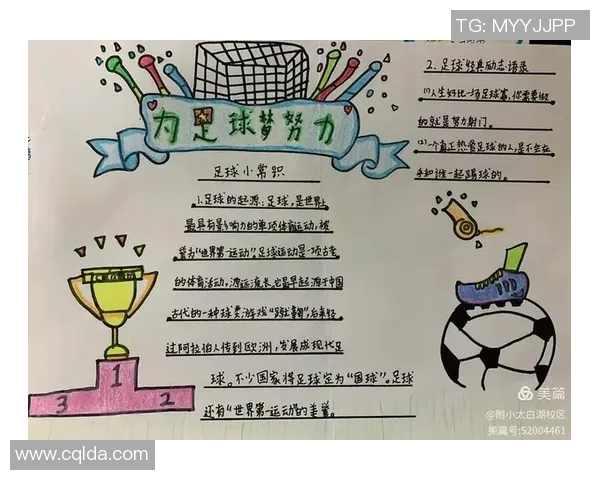 TG: MYYJJPP
为足球梦努力
足球小常识
1.足球的起源：足球，是世界上
最具有影响力的单项体育运动，被
誉为“世界第一运动”，足球运动是一项古老
的体育活动，源远流长。它最早起源于中国
古代的一种球类游戏“蹴鞠”，后来经
过阿拉伯人传到欧洲，发展成现代足
球。不少国家将足球定为“国球”。足球
还有“世界第一运动”的美誉。
2、足球经典励志语录
(1)人生好比一场足球赛，你需要做
的就是努力射门。
(2)一个真正热爱足球的人，是不会在
乎和谁一起踢球的。
1
3
2
美篇
@附小太白湖校区
美篇号:52004461
www.cqlda.com